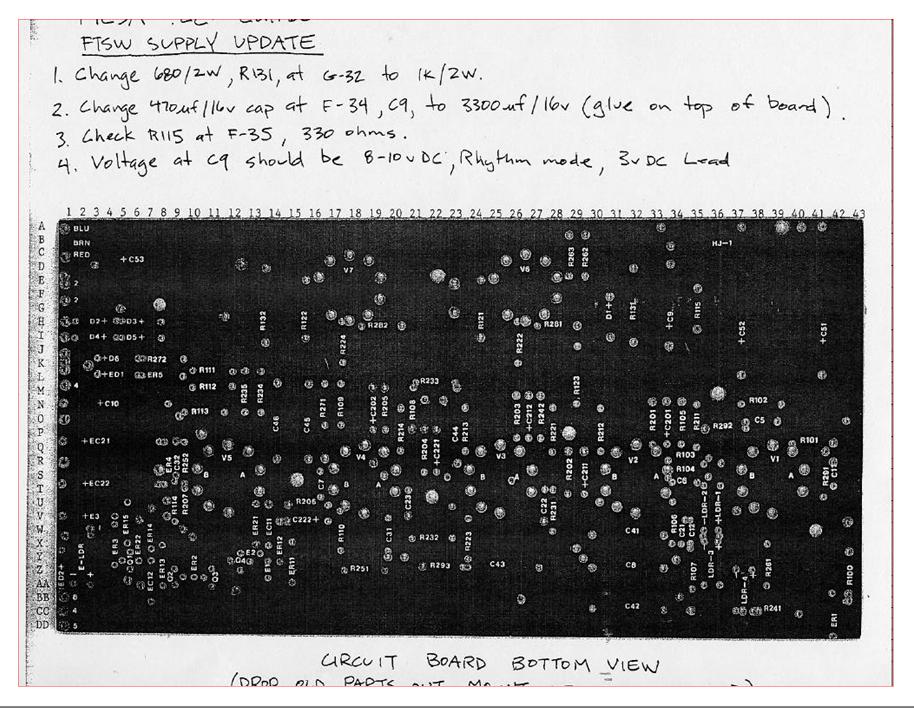 FTSW SUPPLY UPDATE
1. Change 680/2W, R131, at G-32 to 1K/2W.
2. Change 470uf/16v cap at F-34, C9, to 3300uf/16v (glue on top of board).
3. Check R115 at F-35, 330 ohms.
4. Voltage at C9 should be 8-10vDC, Rhythm mode, 3vDC Lead
1 2 3 4 5 6 7 8 9 10 11 12 13 14 15 16 17 18 19 20 21 22 23 24 25 26 27 28 29 30 31 32 33 34 35 36 37 38 39 40 41 42 43
A BLU
B BRN HJ-1
C RED +C53 R263 R262
D V7 V6
E 2
F
G 2 D1+ R131 +C9 R115
H D2+ D3+ R132 R122 R282 R121 R281 +C52 +C51
I D4+ D5+
J R224 R222
K +D6 R272
L +ED1 ER5 R111 R233 R123
M 4 R112 R235 R234
N +C10 R113 R271 R109 +C202 R205 R108 R203 +C212 R242 R201 +C201 R105 R211 R102
O C46 C45 R214 C44 R213 R221 R212 R292 C5
P +EC21 R204 +C221 R101
Q V5 V4 V3 V2 R103 V1
R ER4 C32 R252 R202 +C211 R104 R291 C11
S B A B A B A B A B A
T +EC22 C7 C6
U R114 R207 R206 C23 C22 R231
V +E3 ER15 ER21 EC11 C222+ R106 C21 C12 LDR-2 LDR-1
W ER14 R110 C31 R232 R223 C41
X ER3 ER22 ER12
Y E2 LDR-3
Z E-LDR ER2 C42 C43 C8 R261
AA ED2+ ER12 ER13 Q2 Q3 ER11 R251 R293 R107 R100
BB 6 LDR-4
CC 4 C42 R241
DD 5 ER1
CIRCUIT BOARD BOTTOM VIEW